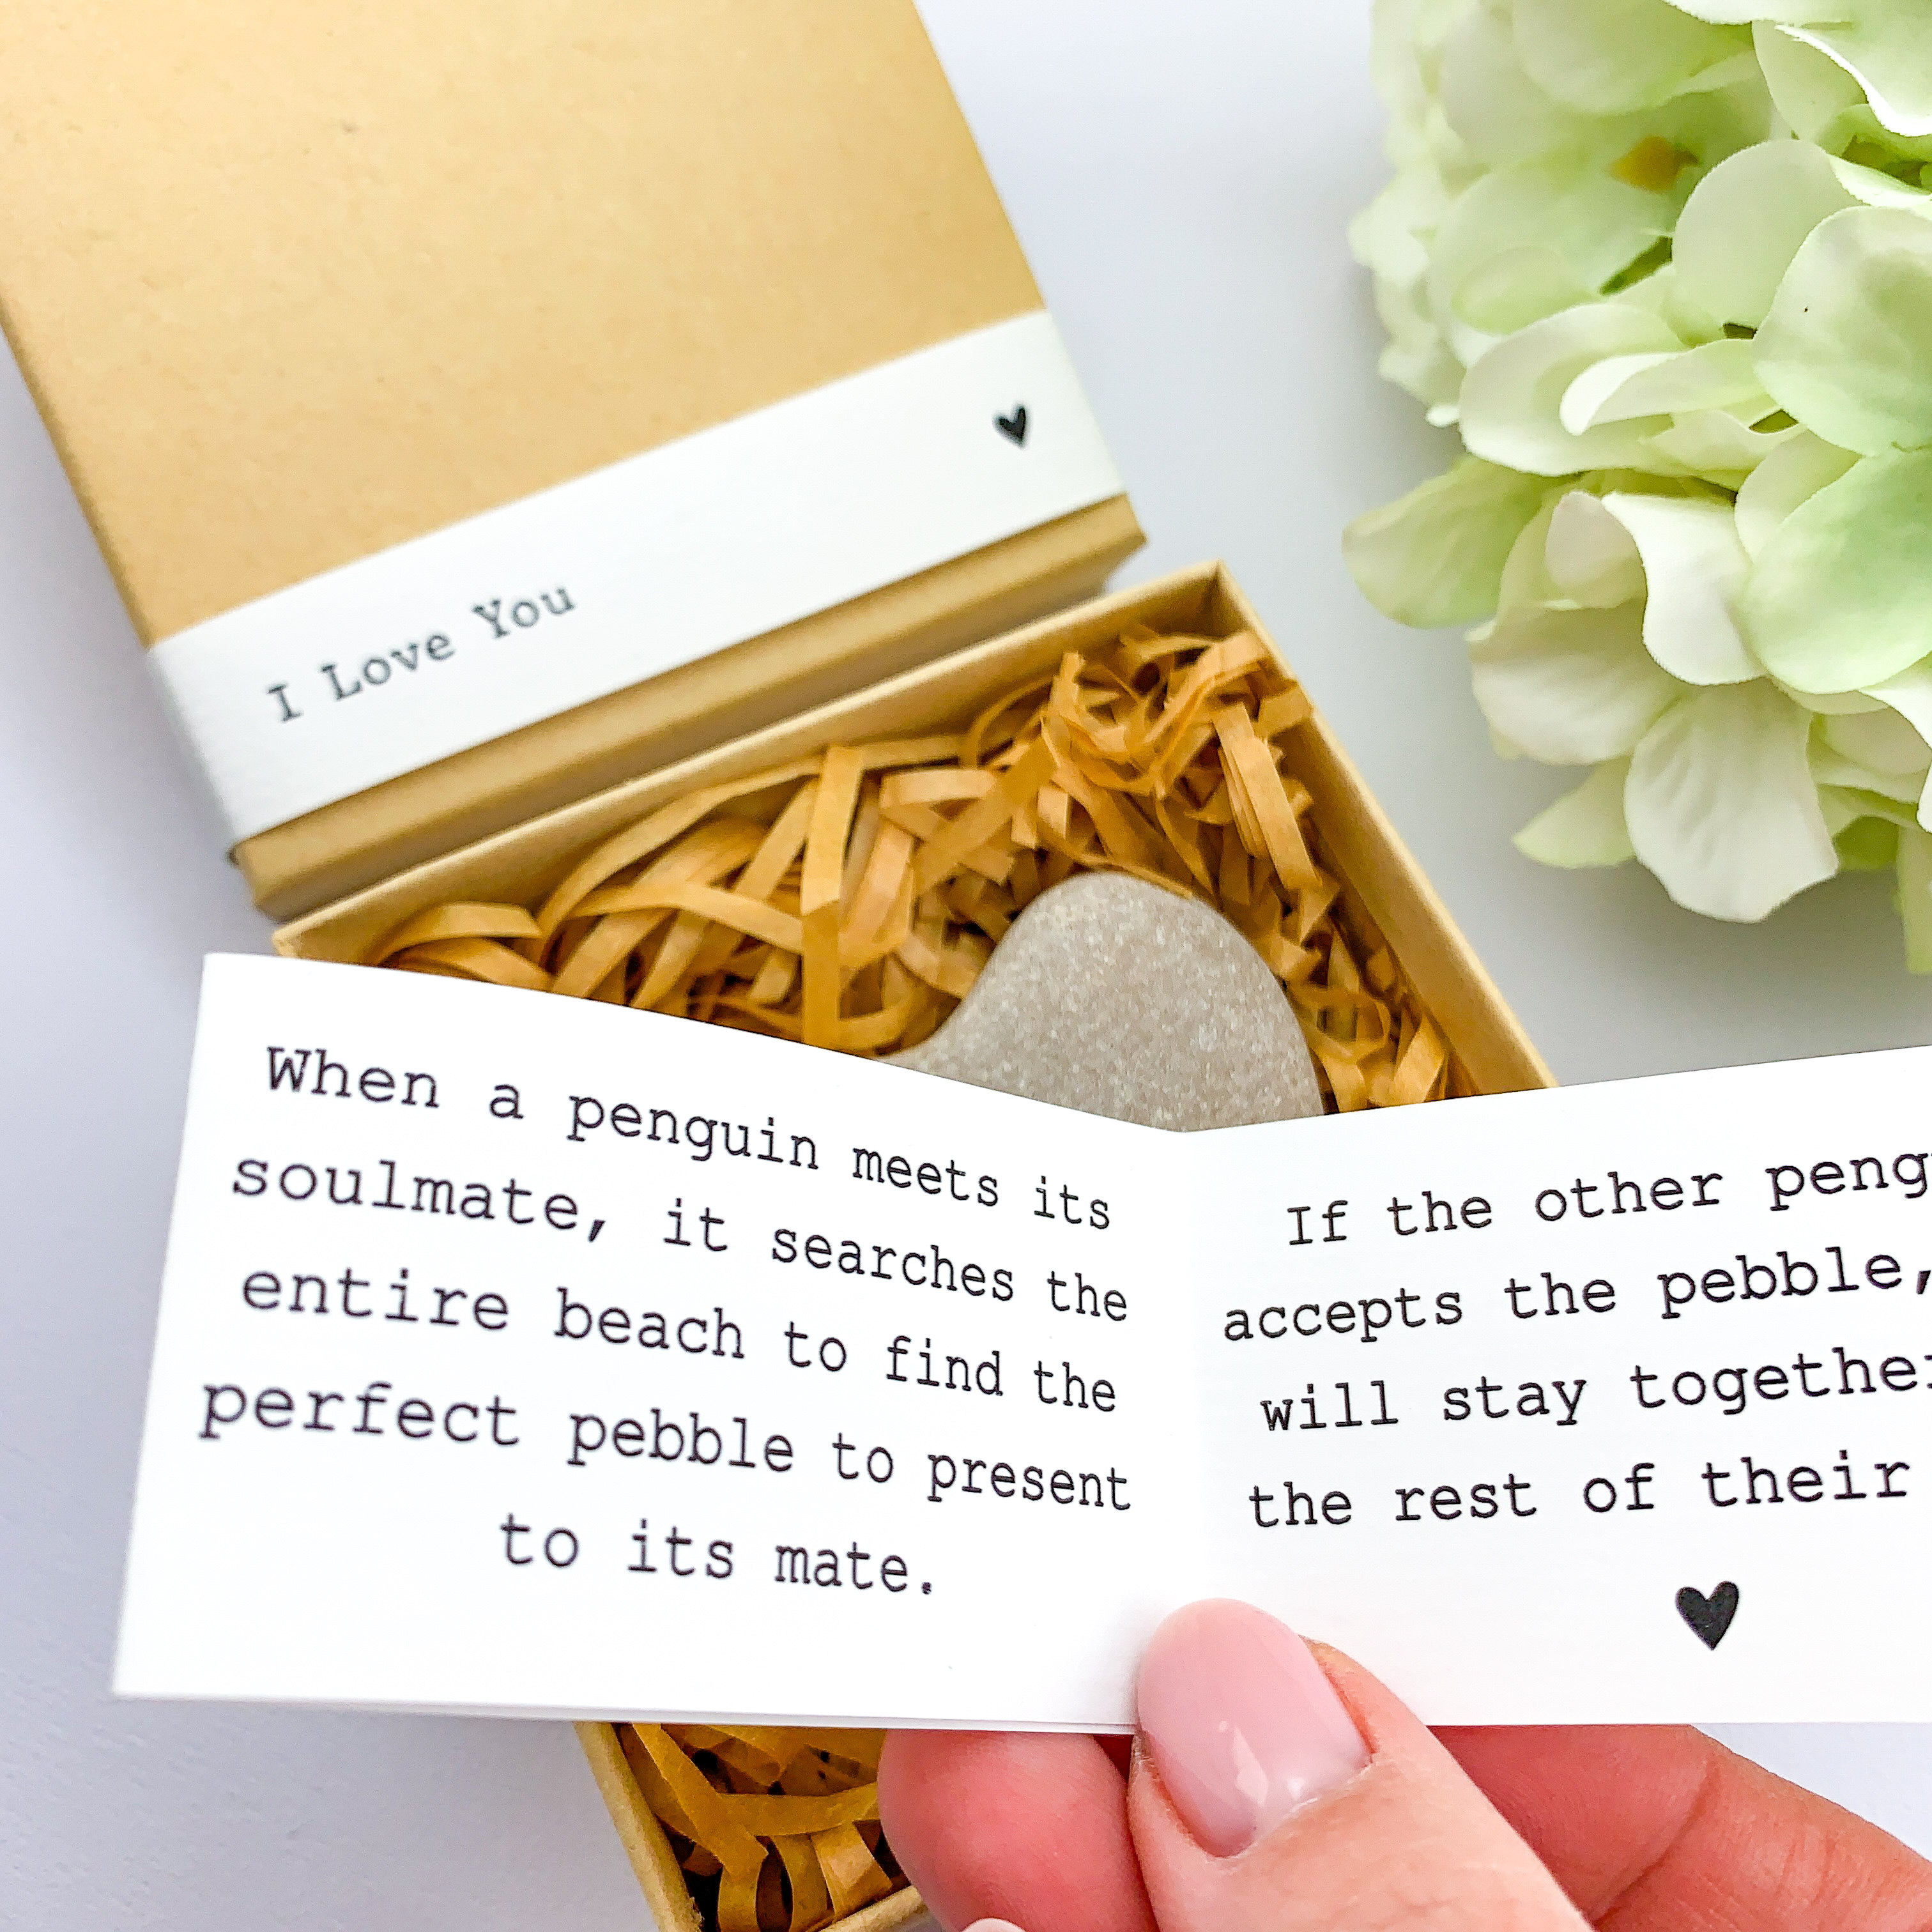 I Love You
When a penguin meets its
soulmate, it searches the
entire beach to find the
perfect pebble to present
to its mate.
If the other
accepts the pebble,
will stay
the rest of their